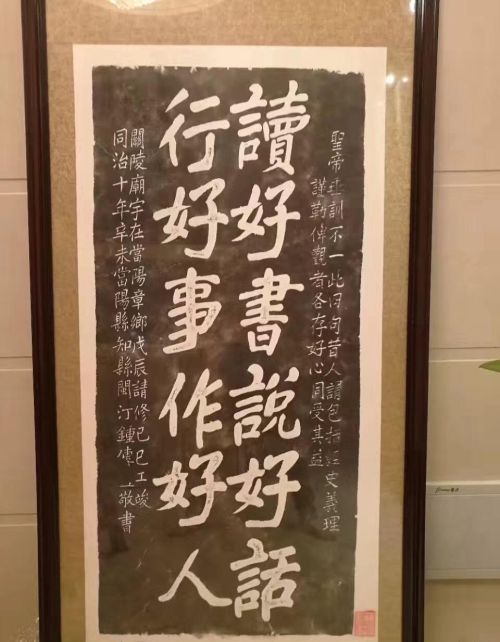 聖帝垂訓不一此四句昔人謂包括經史義理
謹勒俾觀者各存好心同受其益
讀好書說好話
行好事作好人
關陵廟宇在當陽章鄉戊辰請修己巳工竣
同治十年辛未當陽縣知縣閩汀鍾傳一敬書